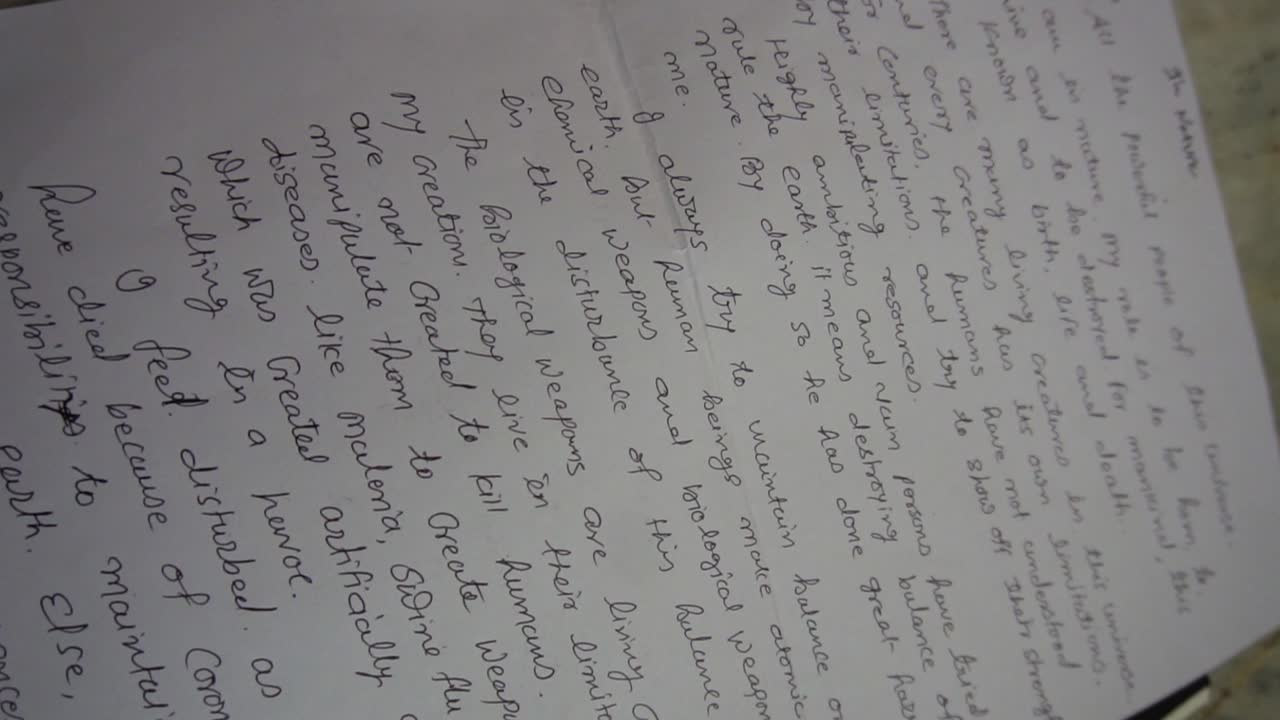 All the powerful people of this universe.
am in nature. my rule is to be born, to
live and to be destroyed. For mankind, this
known as birth, life and death.
There are many living creatures in this universe
every creatures has its own limitations.
and centuries, the humans have not understood
for limitations. and try to show off their strength
their manipulating resources.
by ambitious and vain persons have tried
Highly earth. it means destroying balance of
rule the so he has done great harm
nature. By doing
me.
I always try to maintain balance on
earth. but human beings make atomic
chemical weapons and biological weapons
in the disturbance of this balance
The biological weapons are living
my creation. they live in their limit
are not created to kill humans.
manipulate them to create weap
diseases. like malaria, swine flu
which was created artificially
resulting in a havoc.
I feel disturbed. as
have died because of Coron
responsibilitys. to maintai
earth. Else,